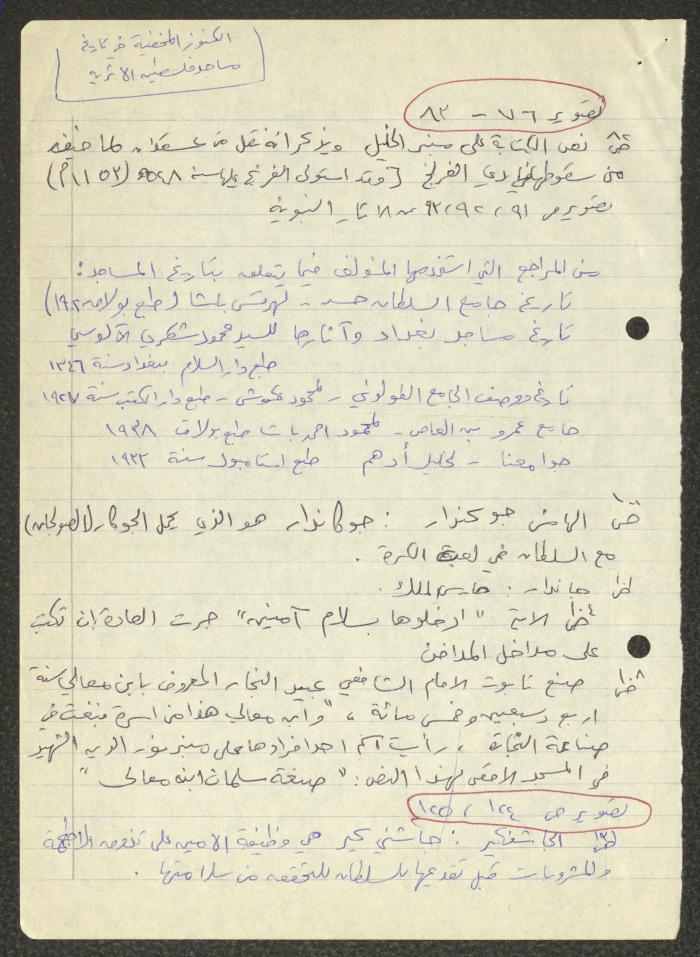 الكنوز المخفية في تاريخ
مساجد فلسطين الأثرية
تصوير ٧٦ - ٨٣
نص الكتابة على منبر الخليل ويذكر انه نقل من عسقلان لما خيف
من سقوطها في ايدي الفرنج [وقد استولى الفرنج عليها سنة ٥٤٨ هـ (١١٥٣ م)
تصوير ص ٩١، ٩٢، ٩٣ النبوية
من المراجع التي استخدمها المؤلف فيما يتعلق بتاريخ المساجد:
تاريخ جامع السلطان حسن - لهرتس باشا (طبع بولاق ١٩٠٢)
تاريخ مساجد بغداد وآثارها للسيد محمود شكري الآلوسي
طبع دار السلام بغداد سنة ١٣٤٦
تاريخ ووصف الجامع الطولوني - لمحمود عكوش - طبع دار الكتب سنة ١٩٢٧
جامع عمرو بن العاص - لمحمود احمد باشا طبع بولاق ١٩٣٨
جوامعنا - لخليل أدهم طبع استامبول سنة ١٩٣٢
الهامش جوكندار : جوكاندار هو الذي يحمل الجوكان (الصولجان)
مع السلطان في لعبة الكرة .
جاندار : حارس الملك .
الآية "ادخلوها بسلام آمنين" جرت العادة ان تكتب
على مداخل المدافن
صنع تابوت الامام الشافعي عبيد النجار المعروف بابن معالي سنة
اربع وسبعين وخمس مائة ، "وابن معالي هذا من اسرة نبغت في
صناعة النجارة ، رأيت اسم احد افرادها على منبر نور الدين الشهير
في المسجد الاقصى بهذا النص : "صنعة سلمان ابن معالى"
تصوير ص ١٢٤ ، ١٢٥
الجاشنكير : جاشني كير هي وظيفة الامين على تذوق الاطعمة
والمشروبات قبل تقديمها للسلطان للتحقق من سلامتها .